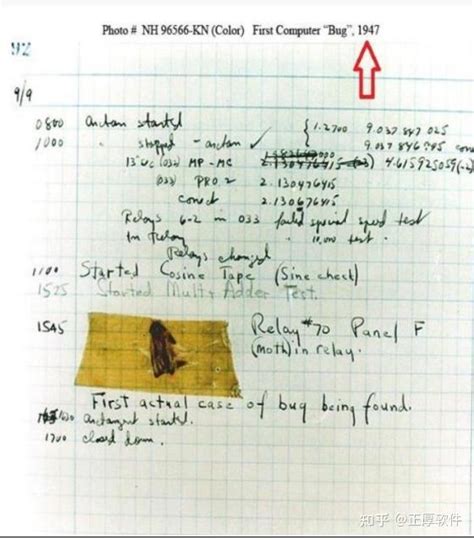 Photo # NH 96566-KN (Color) First Computer "Bug", 1947
92
9/9
0800 Antan started
1000 " stopped - antan ✓
{ 1.2700 9.037 847 025
9.037 846 995 conect
13" UC (032) MP - MC 2.130476415 4.615925059(-2)
(033) PRO 2 2.130476415
conect 2.130676415
Relays 6-2 in 033 failed special speed test
In Relay " 10,000 test.
Relays changed
1100 Started Cosine Tape (Sine check)
1525 Started Mult+Adder Test.
1545 Relay #70 Panel F
(moth) in relay.
First actual case of bug being found.
1630 antangent started.
1700 closed down.
知乎 @正厚软件